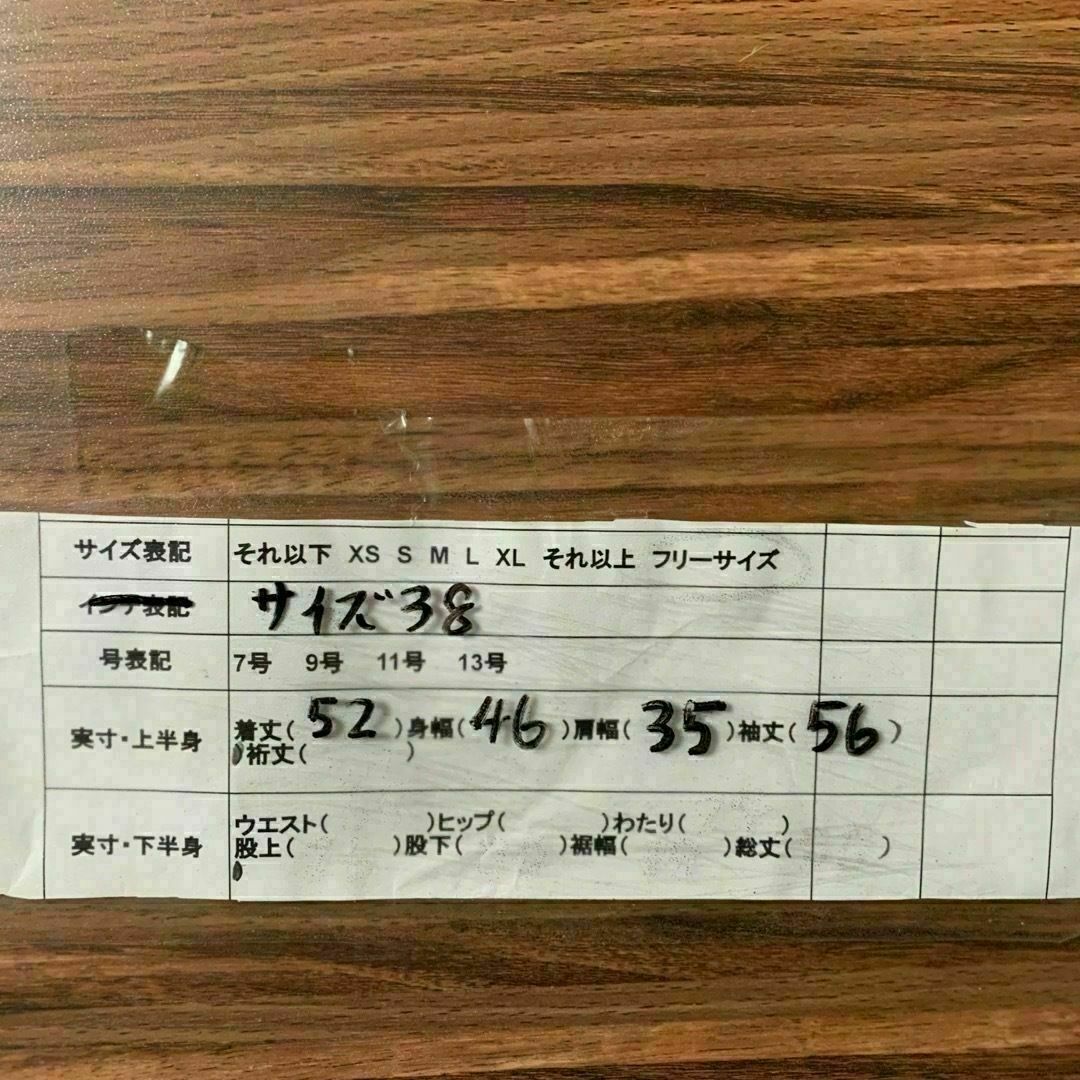 サイズ表記 それ以下 XS S M L XL それ以上 フリーサイズ
インチ表記 サイズ38
号表記 7号 9号 11号 13号
実寸・上半身 着丈( 52 )身幅( 46 )肩幅( 35 )袖丈( 56 )
裄丈( )
実寸・下半身 ウエスト( )ヒップ( )わたり( )
股上( )股下( )裾幅( )総丈( )